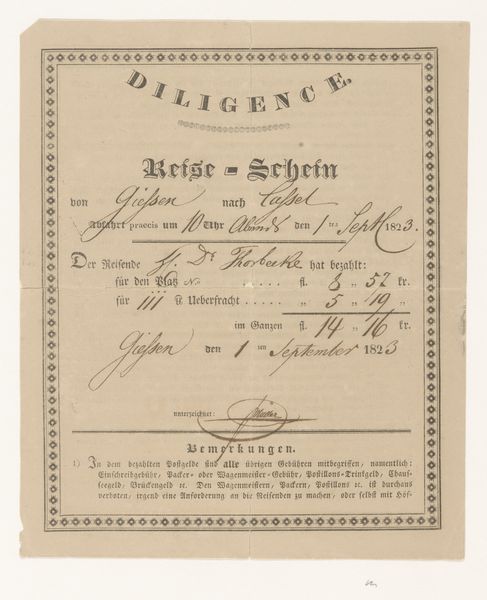 DILIGENCE.
Reise - Schein
von Giessen nach Cassel
Abfahrt praecis um 10 Uhr Abends den 1 ten Sept 1823.
Der Reisende H. Dr Thorbecke hat bezahlt:
für den Platz No ..... fl. 8 „ 57 kr.
für 111 ℔ Ueberfracht ..... „ 5 „ 19 „
im Ganzen fl. 14 „ 16 kr.
Giessen den 1 ten September 1823
unterzeichnet:
Bemerkungen.
1) In dem bezahlten Postgelde sind alle übrigen Gebühren mitbegriffen, namentlich:
Einschreibgebühr, Packer- oder Wagenmeister-Gebühr, Postillons-Trinkgeld, Chaus-
seegeld, Brückengeld ꝛc. Den Wagenmeistern, Packern, Postillons ꝛc. ist durchaus
verboten, irgend eine Anforderung an die Reisenden zu machen, oder selbst mit Höf-